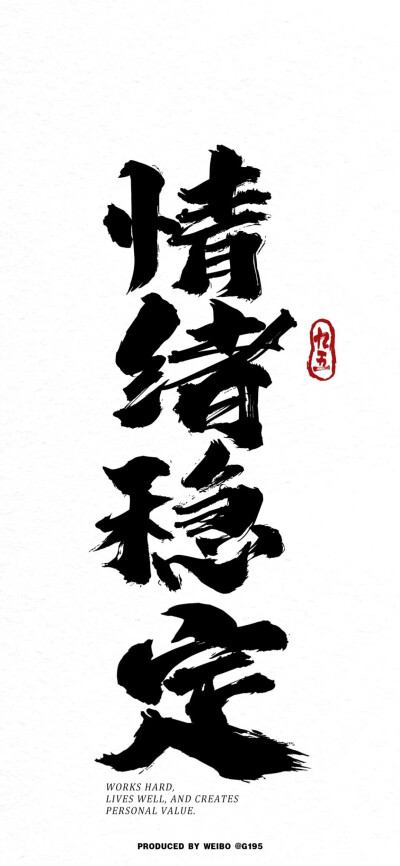 情绪稳定
九五
WORKS HARD,
LIVES WELL, AND CREATES
PERSONAL VALUE.
PRODUCED BY WEIBO @G195